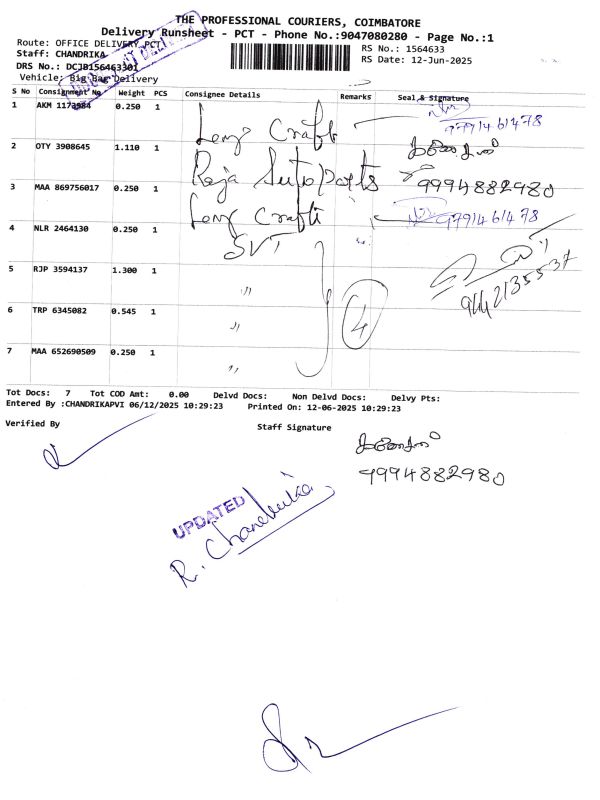 THE PROFESSIONAL COURIERS, COIMBATORE
Delivery Runsheet - PCT - Phone No.:9047080280 - Page No.:1
Route: OFFICE DELIVERY PCT
RS No.: 1564633
Staff: CHANDRIKA
RS Date: 12-Jun-2025
DRS No.: DCJB156463301
Vehicle: Big Bag Delivery
S No Consignment No Weight PCS Consignee Details Remarks Seal & Signature
1 AKM 1173984 0.250 1 Leny Craft 9791461478
2 OTY 3908645 1.110 1 Raja Auto Parts 9994882980
3 MAA 869756017 0.250 1 Leny Craft 9791461478
4 NLR 2464130 0.250 1 SVT
5 RJP 3594137 1.300 1 〃 9442135537
6 TRP 6345082 0.545 1 〃 4
7 MAA 652690509 0.250 1 〃
Tot Docs: 7 Tot COD Amt: 0.00 Delvd Docs: Non Delvd Docs: Delvy Pts:
Entered By :CHANDRIKAPVI 06/12/2025 10:29:23 Printed On: 12-06-2025 10:29:23
Verified By Staff Signature
9994882980
UPDATED
R. Chandrika